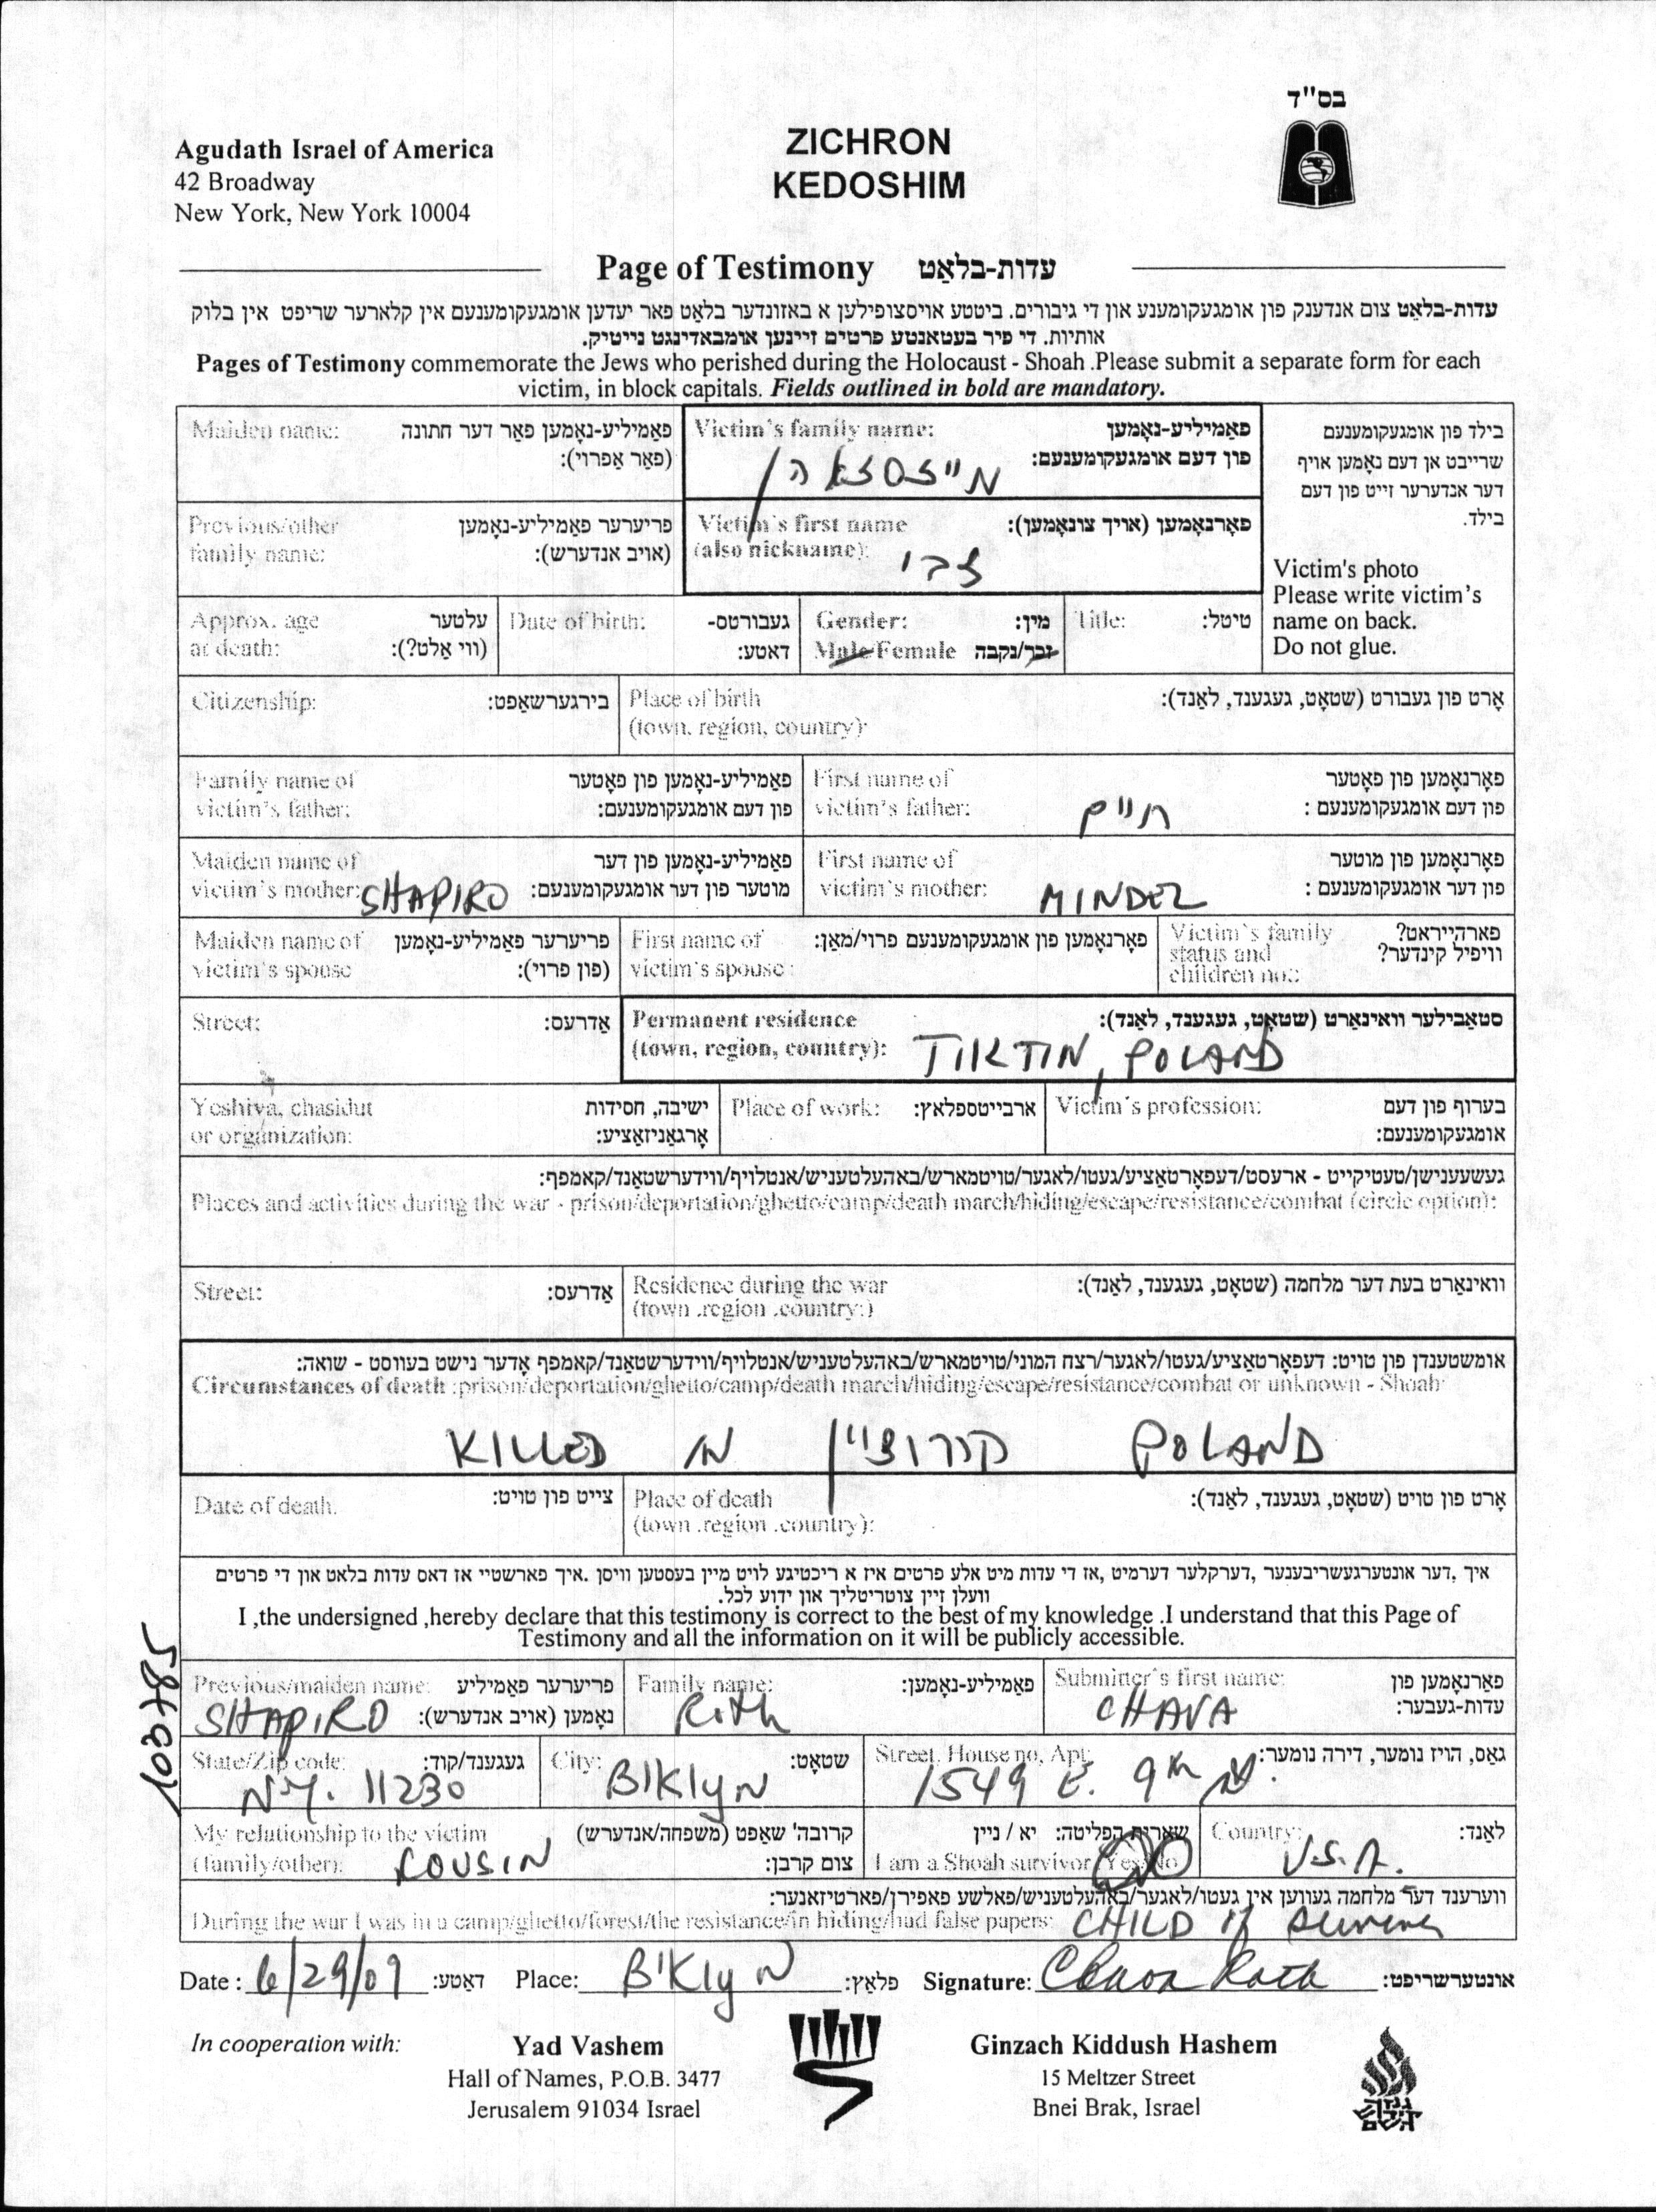 בס"ד
Agudath Israel of America
42 Broadway
New York, New York 10004
ZICHRON
KEDOSHIM
Page of Testimony עדות-בלאַט
עדות-בלאַט צום אנדענק פון אומגעקומענע און די גיבורים. ביטטע אויסצופילען א באזונדער בלאַט פאר יעדען אומגעקומענעם אין קלארער שריפט אין בלוק
אותיות. די פיר בעטאנטע פרטים זיינען אומבאדינגט נייטיק.
Pages of Testimony commemorate the Jews who perished during the Holocaust - Shoah .Please submit a separate form for each
victim, in block capitals. Fields outlined in bold are mandatory.
Maiden name: פאַמיליע-נאָמען פאַר דער חתונה
(פאַר אַפרוי):
Victim's family name: פאַמיליע-נאָמען
פון דעם אומגעקומענעם:
בילד פון אומגעקומענעם
שרייבט אן דעם נאָמען אויף
דער אנדערער זייט פון דעם
בילד.
Victim's photo
Please write victim's
name on back.
Do not glue.
Previous/other פריערער פאַמיליע-נאָמען
family name: (אויב אנדערש):
Victim's first name פאָרנאָמען (אויך צונאָמען):
(also nickname):
Approx. age עלטער
at death: (ווי אַלט?):
Date of birth: געבורטס-
דאטע:
Gender: מין:
Male/Female זכר/נקבה
Title: טיטל:
Citizenship: בירגערשאַפט:
Place of birth אָרט פון געבורט (שטאָט, געגענד, לאַנד):
(town, region, country):
Family name of פאַמיליע-נאָמען פון פאָטער
victim's father: פון דעם אומגעקומענעם:
First name of פאָרנאָמען פון פאָטער
victim's father: חיים פון דעם אומגעקומענעם :
Maiden name of פאַמיליע-נאָמען פון דער
victim's mother: SHAPIRO מוטער פון דער אומגעקומענעם:
First name of פאָרנאָמען פון מוטער
victim's mother: MINDEL פון דער אומגעקומענעם :
Maiden name of פריערער פאַמיליע-נאָמען
victim's spouse (פון פרוי):
First name of פאָרנאָמען פון אומגעקומענעם פרוי/מאַן:
victim's spouse :
Victim's family פארהייראט?
status and וויפיל קינדער?
children no.:
Street: אַדרעס:
Permanent residence סטאַבילער וואוינאַרט (שטאָט, געגענד, לאַנד):
(town, region, country): TIKTIN, POLAND
Yeshiva, chasidut ישיבה, חסידות
or organization: אָרגאַניזאַציע:
Place of work: ארבייטספלאץ:
Victim's profession: בערוף פון דעם
אומגעקומענעם:
געשעענישן/טעטיקייט - ארעסט/דעפאָרטאַציע/געטו/לאגער/טויטמארש/באהעלטעניש/אנטלויף/ווידערשטאַנד/קאמפף:
Places and activities during the war - prison/deportation/ghetto/camp/death march/hiding/escape/resistance/combat (circle option):
Street: אַדרעס:
Residence during the war וואוינאַרט בעת דער מלחמה (שטאָט, געגענד, לאַנד):
(town .region .country:)
אומשטענדן פון טויט: דעפאָרטאַציע/געטו/לאגער/רצח המוני/טויטמארש/באהעלטעניש/אנטלויף/ווידערשטאַנד/קאמפף אָדער נישט בעוווסט - שואה:
Circumstances of death :prison/deportation/ghetto/camp/death march/hiding/escape/resistance/combat or unknown - Shoah:
KILLED IN POLAND
Date of death. צייט פון טויט:
Place of death אָרט פון טויט (שטאָט, געגענד, לאַנד):
(town .region .country):
איך ,דער אונטערגעשריבענער ,דערקלער דערמיט ,אז די עדות מיט אלע פרטים איז א ריכטיגע לויט מיין בעסטען וויסן .איך פארשטיי אז דאס עדות בלאט און די פרטים
וועלן זיין צוטריטליך און ידוע לכל.
I ,the undersigned ,hereby declare that this testimony is correct to the best of my knowledge .I understand that this Page of
Testimony and all the information on it will be publicly accessible.
103785
Previous/maiden name: פריערער פאַמיליע
SHAPIRO נאָמען (אויב אנדערש):
Family name: פאַמיליע-נאָמען:
Roth
Submitter's first name: פאַרנאָמען פון
CHAVA עדות-געבער:
State/Zip code: געגענד/קוד:
N.Y. 11230
City: שטאָט:
B'Klyn
Street, House no, Apt: גאַס, הויז נומער, דירה נומער:
1549 E. 9th
My relationship to the victim קרובה' שאַפט (משפחה/אנדערש)
(family/other): COUSIN צום קרבן:
שארית הפליטה: יא / ניין
I am a Shoah survivor: Yes/No
Country: לאַנד:
U.S.A.
ווערענד דער מלחמה געווען אין געטו/לאגער/באהעלטעניש/פאלשע פאפירן/פארטיזאנער:
During the war I was in a camp/ghetto/forest/the resistance/in hiding/had false papers: CHILD of
Date : 6/29/09 דאַטע: Place: B'Klyn פלאַץ: Signature: Chava Roth אונטערשריפט:
In cooperation with:
Yad Vashem
Hall of Names, P.O.B. 3477
Jerusalem 91034 Israel
Ginzach Kiddush Hashem
15 Meltzer Street
Bnei Brak, Israel